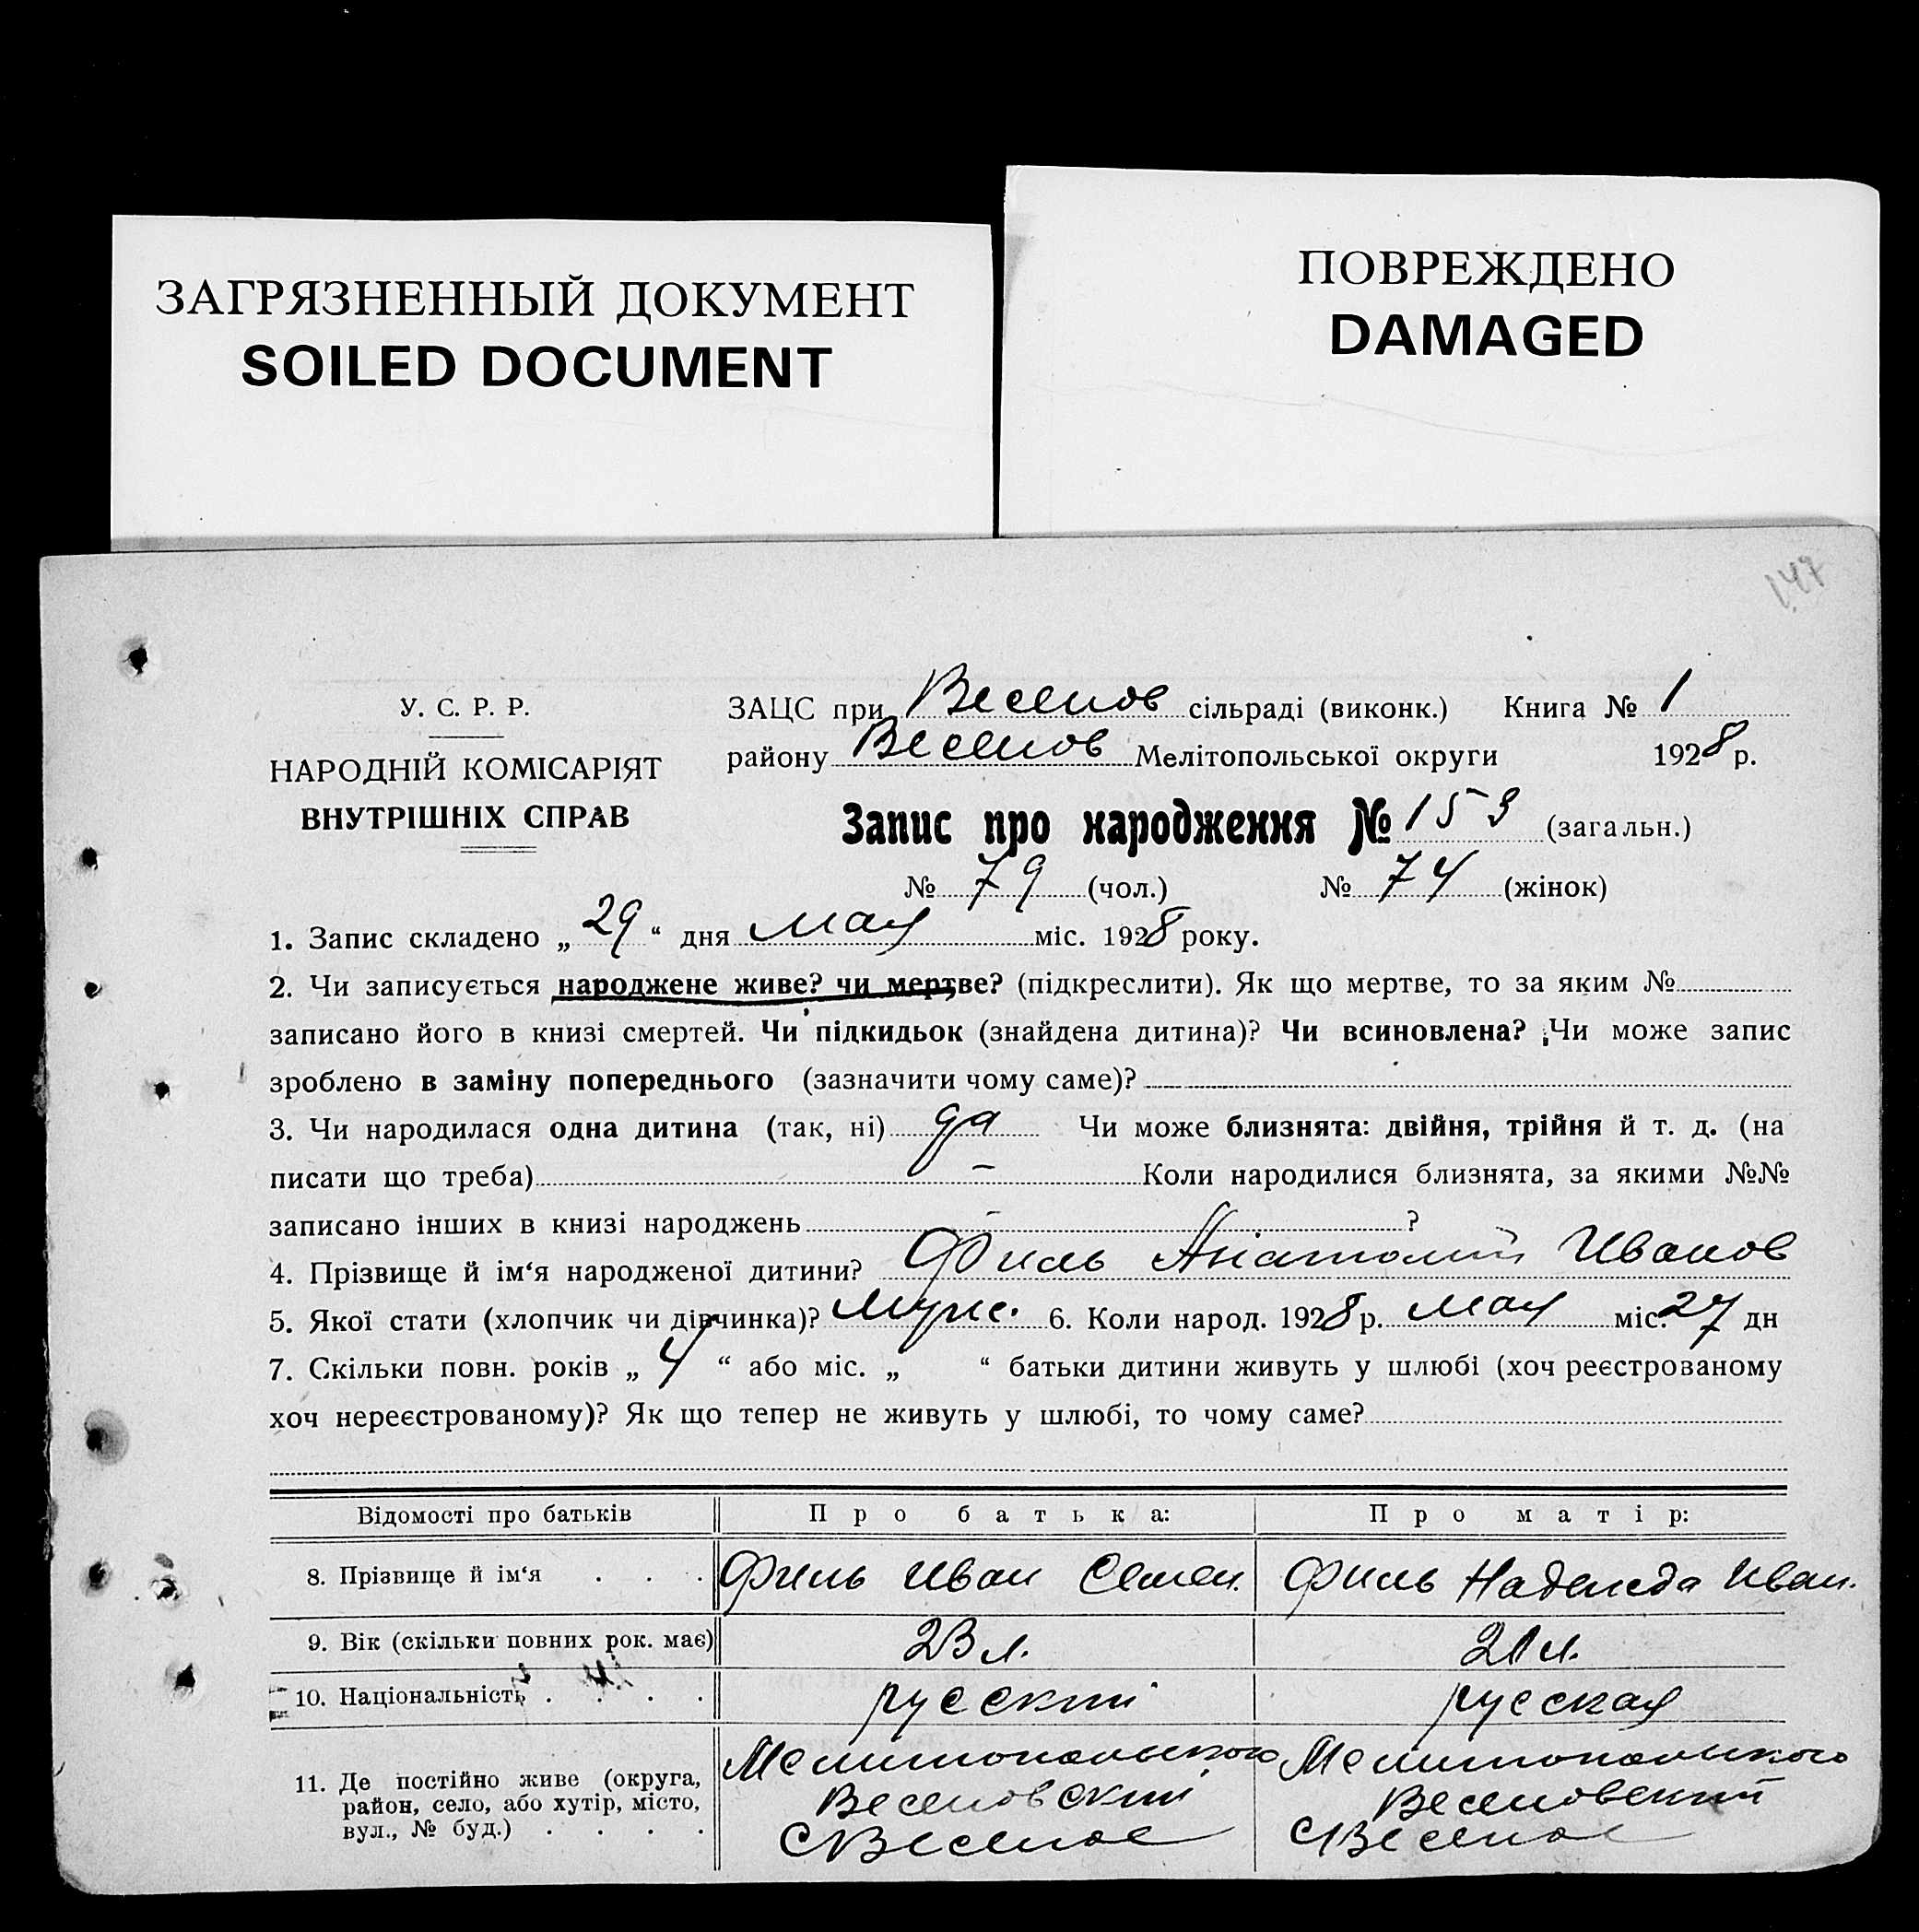 ЗАГРЯЗНЕННЫЙ ДОКУМЕНТ
SOILED DOCUMENT
ПОВРЕЖДЕНО
DAMAGED
147
У. С. Р. Р.
НАРОДНІЙ КОМІСАРІЯТ
ВНУТРІШНІХ СПРАВ
ЗАЦС при Веселов сільраді (виконк.) Книга № 1
району Веселов Мелітопольської округи 1928 р.
Запис про народження № 153 (загальн.)
№ 79 (чол.) № 74 (жінок)
1. Запис складено „ 29 “ дня мая міс. 1928 року.
2. Чи записується народжене живе? чи мертве? (підкреслити). Як що мертве, то за яким №
записано його в книзі смертей. Чи підкидьок (знайдена дитина)? Чи всиновлена? Чи може запис
зроблено в заміну попереднього (зазначити чому саме)?
3. Чи народилася одна дитина (так, ні) да Чи може близнята: двійня, трійня й т. д. (на
писати що треба) — Коли народилися близнята, за якими №№
записано інших в книзі народжень — ?
4. Прізвище й ім‘я народженої дитини? Филь Анатолий Иванов
5. Якої стати (хлопчик чи дівчинка)? Муж. 6. Коли народ. 1928 р. мая міс. 27 дн
7. Скільки повн. років „ 4 “ або міс. „ “ батьки дитини живуть у шлюбі (хоч реєстрованому
хоч нереєстрованому)? Як що тепер не живуть у шлюбі, то чому саме?
Відомості про батьків Про батька: Про матір:
8. Прізвище й ім‘я . . . Филь Иван Семен. Филь Надежда Иван.
9. Вік (скільки повних рок. має) 23 л. 21 л.
10. Національність . . . . русский русская
11. Де постійно живе (округа, Мелитопольского Мелитопольского
район, село, або хутір, місто, Веселовский Веселовский
вул., № буд.) . . . . С Веселое С Веселое